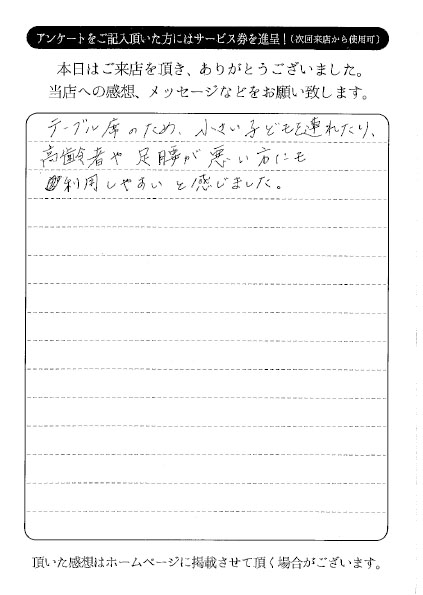 アンケートをご記入頂いた方にはサービス券を進呈！（次回来店から使用可）
本日はご来店を頂き、ありがとうございました。
当店への感想、メッセージなどをお願い致します。
テーブル席のため、小さい子どもを連れたり、
高齢者や足腰が悪い方にも
利用しやすいと感じました。
頂いた感想はホームページに掲載させて頂く場合がございます。